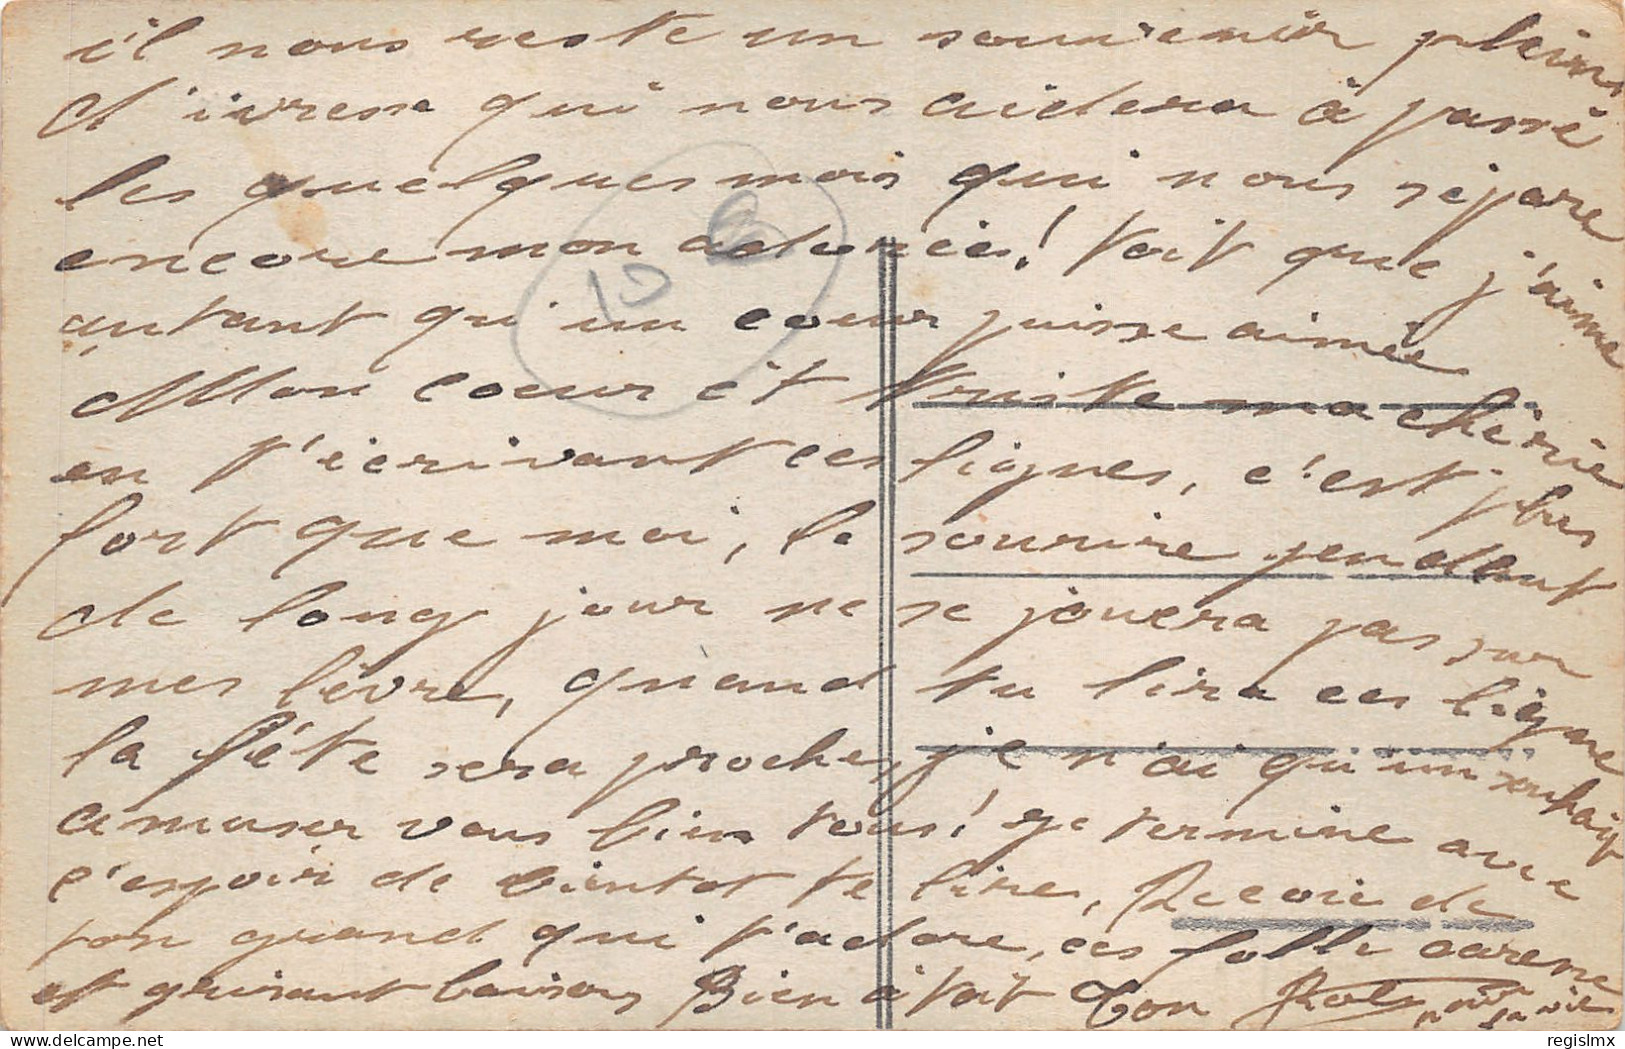 il nous reste un souvenir pleins
d'ivresse qui nous aidera à passé
les quelques mois qui nous sépare
encore mon adorée! Voit que j'aime
autant qu'un coeur puisse aimée
Mon coeur ét triste ma chérie
en t'écrivant ces lignes, c'est plus
fort que moi, le sourire pendant
de long jour ne se jouera pas sur
mes lèvre, quand tu lira ces ligne
la fête sera proche, je n'ai qu'un souhait
amuser vous bien tous! je termine avec
l'espoir de bientot te lire, Recoie de
ton grand qui t'adore, ces folle caresse
et grisant baisers Bien à toit Ton
10
regislmx